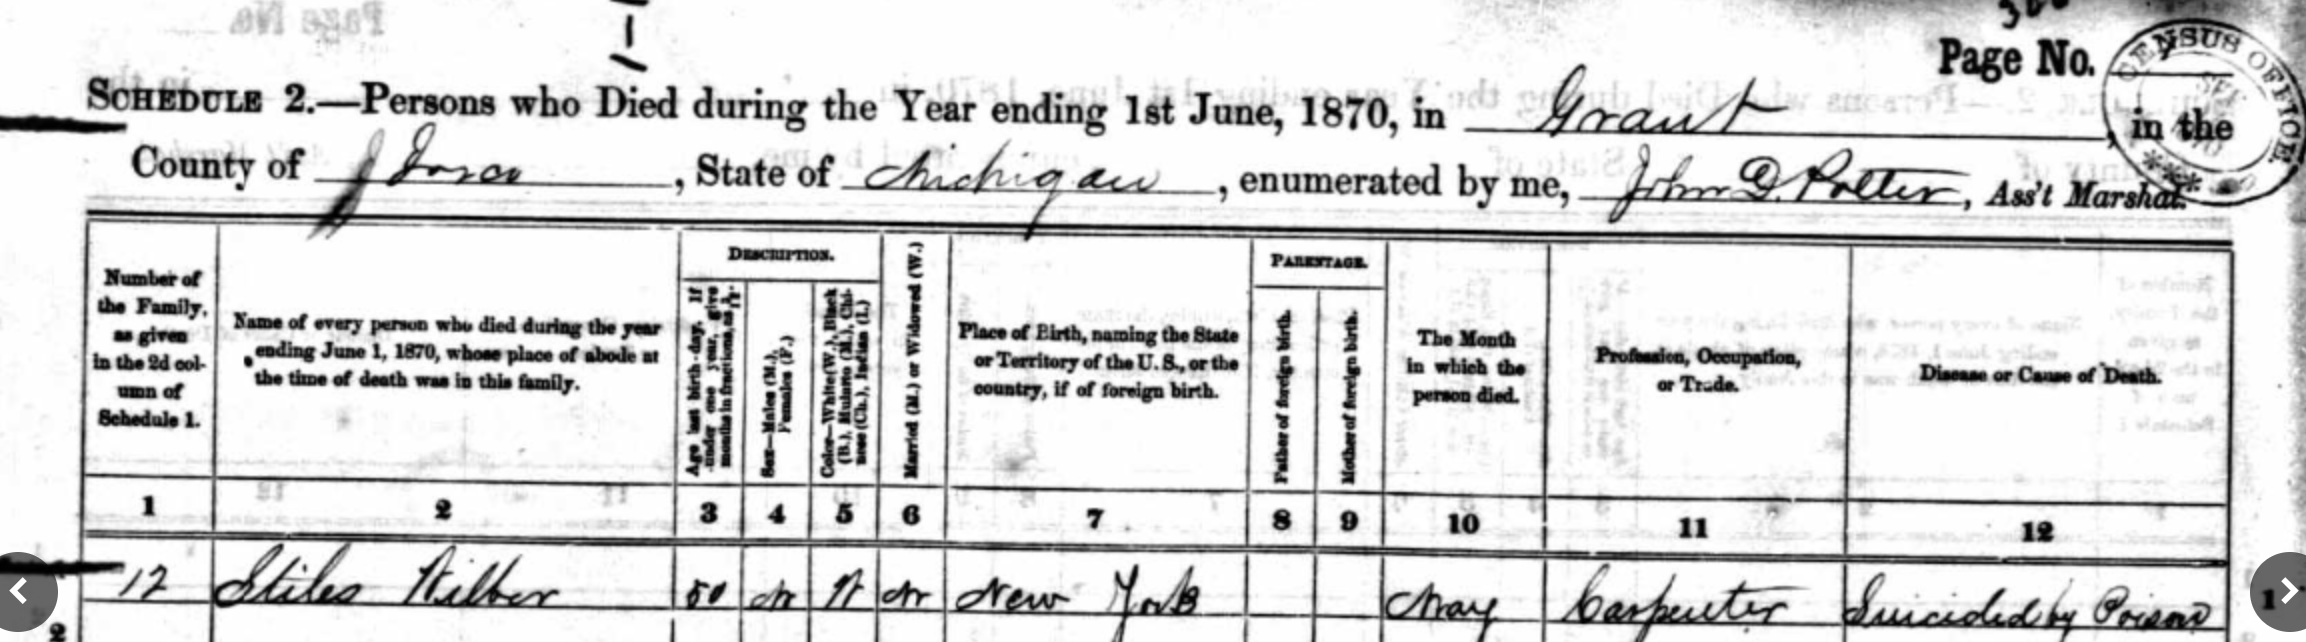 Page No.
SCHEDULE 2.—Persons who Died during the Year ending 1st June, 1870, in Grant, in the
County of Iosco, State of Michigan, enumerated by me, John D. Potter, Ass't Marshal.
CENSUS OFFICE
DESCRIPTION.
PARENTAGE.
Number of the Family, as given in the 2d column of Schedule 1.
Name of every person who died during the year ending June 1, 1870, whose place of abode at the time of death was in this family.
Age last birth-day. If under one year, give months in fractions, as
Sex—Males (M.), Females (F.)
Color—White (W.), Black (B.), Mulatto (M.), Chinese (Ch.), Indian (I.)
Married (M.) or Widowed (W.)
Place of Birth, naming the State or Territory of the U. S., or the country, if of foreign birth.
Father of foreign birth.
Mother of foreign birth.
The Month in which the person died.
Profession, Occupation, or Trade.
Disease or Cause of Death.
1 2 3 4 5 6 7 8 9 10 11 12
12 Stiles Wilber 50 M W M New York May Carpenter Suicided by Poison 1
2